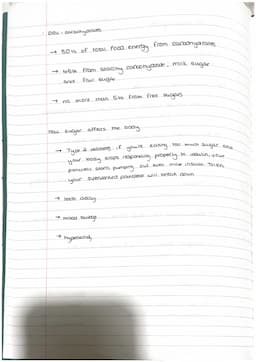 DRVs - carbohydrates
→ 50% of total food energy from carbohydrates
→ 45% from starchy carbohydrate, milk sugar
and fruit sugar
→ no more than 5% from free sugars
How sugar affects the body
→ Type 2 diabetes, if you're eating too much sugar and
your body stops responding properly to insulin, your
pancreas starts pumping out even more insulin. Then,
your overworked pancreas will break down
→ tooth decay
→ mood swings
→ hyperactivity